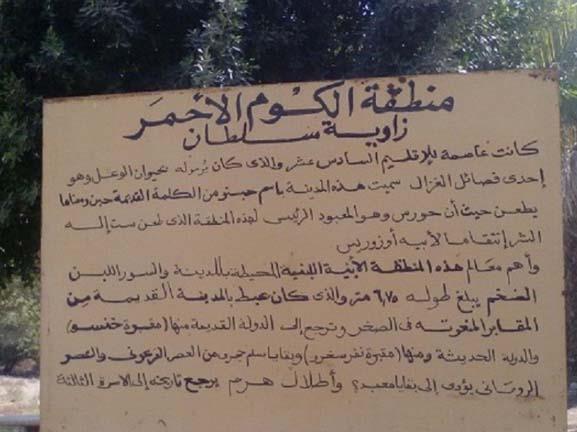 منطقة الكوم الأحمر
زاوية سلطان
كانت عاصمة للإقليم السادس عشر والذى كان يرمز له بحيوان الوعل وهو
إحدى فصائل الغزال سميت هذه المدينة باسم حبنو من الكلمة القديمة حبن ومعناها
يطعن حيث أن حورس وهو المعبود الرئيسى لهذه المنطقة الذى طعن ست إله
الشر إنتقاما لأبيه أوزوريس
وأهم معالم هذه المنطقة الأبنية اللبنية المحيطة بالمدينة والسور اللبن
الضخم يبلغ طوله ٦,٧٥ متر والذى كان يحيط بالمدينة القديمة من
المقابر المنحوتة فى الصخر وترجع إلى الدولة القديمة منها (مقبرة خنسو)
والدولة الحديثة ومنها (مقبرة نفرسخرو) وبقايا سلم حجرى من العصر الفرعونى والعصر
الرومانى يؤدى إلى بقايا معبد؟ وأطلال هرم يرجع تاريخه إلى الأسرة الثالثة